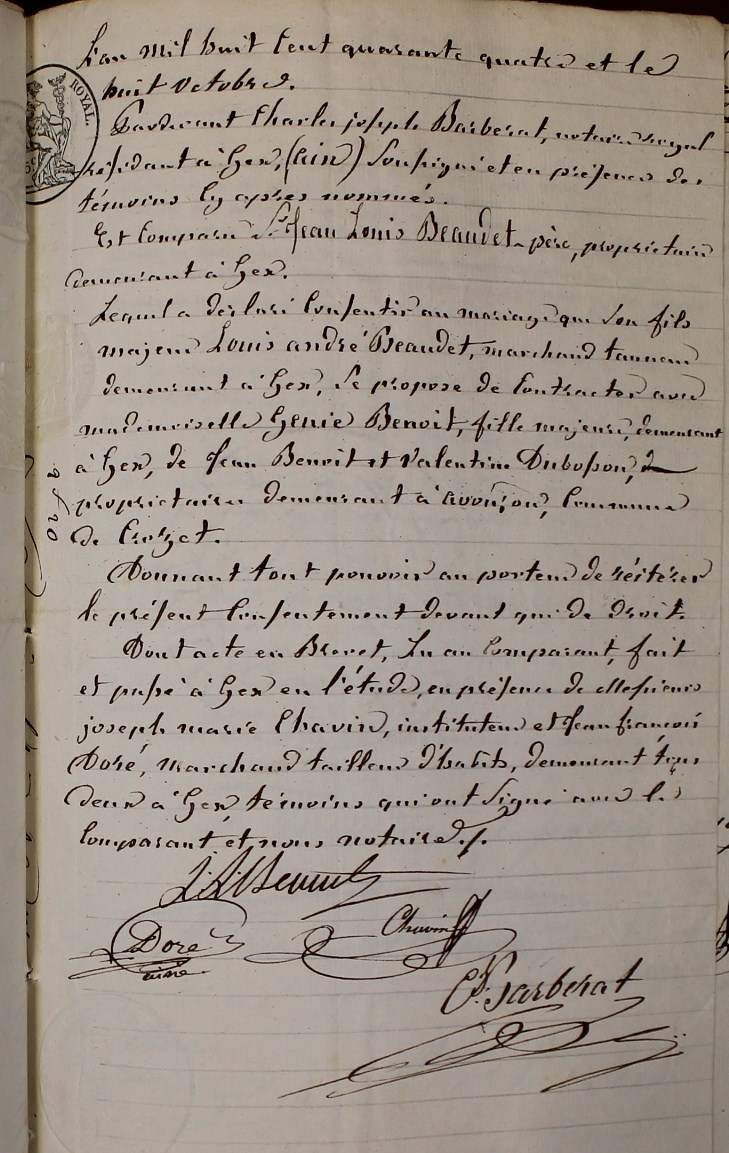 ROYAL.
L'an mil huit cent quarante quatre et le
huit octobre.
Pardevant Charles joseph Barberat, notaire royal
résidant à Gex, (ain) soussigné et en présence des
témoins cy après nommés.
Est comparu Sr. Jean Louis Beaudet père, propriétaire
demeurant à Gex.
Lequel a déclaré consentir au mariage que son fils
majeur Louis andré Beaudet, marchand tanneur
demeurant à Gex, se propose de contracter avec
mademoiselle Génie Benoit, fille majeure, demeurant
à Gex, de Jean Benoit et Valentine Dubosson,
propriétaires demeurant à avouzon, Commune
de Crozet.
Donnant tout pouvoir au porteur de réitérer
le présent consentement devant qui de droit.
Dont acte en Brevet, lu au comparant, fait
et passé à Gex en l'étude, en présence de Messieurs
joseph marie Chavin, instituteur et Jean françois
Doré, marchand tailleur d'habits, demeurant tous
deux à Gex, témoins qui ont signé avec le
comparant et nous notaire./.
Doré
Chavin
Barberat